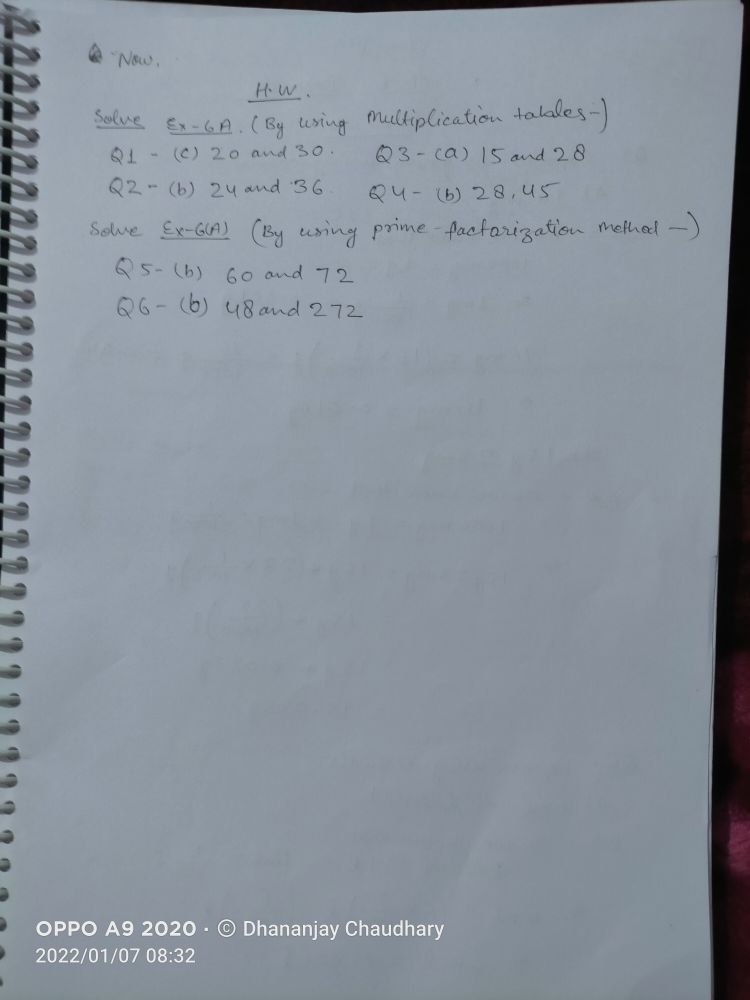 Now.
H.W.
Solve Ex-6A. (By using Multiplication tables-)
Q1 - (c) 20 and 30. Q3 - (a) 15 and 28
Q2 - (b) 24 and 36. Q4 - (b) 28, 45
Solve Ex-6(A) (By using prime-factorization method -)
Q5 - (b) 60 and 72
Q6 - (b) 48 and 272
OPPO A9 2020 · © Dhananjay Chaudhary
2022/01/07 08:32